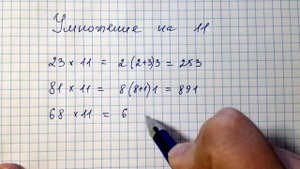 Умножение на 11
23 × 11 = 2(2+3)3 = 253
81 × 11 = 8(8+1)1 = 891
68 × 11 = 6